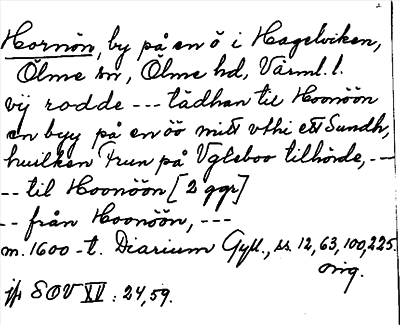 Hornön, by på en ö i Hagelviken,
Ölme sn, Ölme hd, Värml. l.
vij rodde --- tädhan til Hoonöön
en byy på en öö mitt vthi ett Sundh,
huilken Frun på Ugleboo tilhörde, ---
-- til Hoonöön [2 ggr]
-- från Hoonöön, ---
m. 1600-t. Diarium Gyll., ss. 12, 63, 100, 225.
orig.
jfr SOV XV: 24, 59.